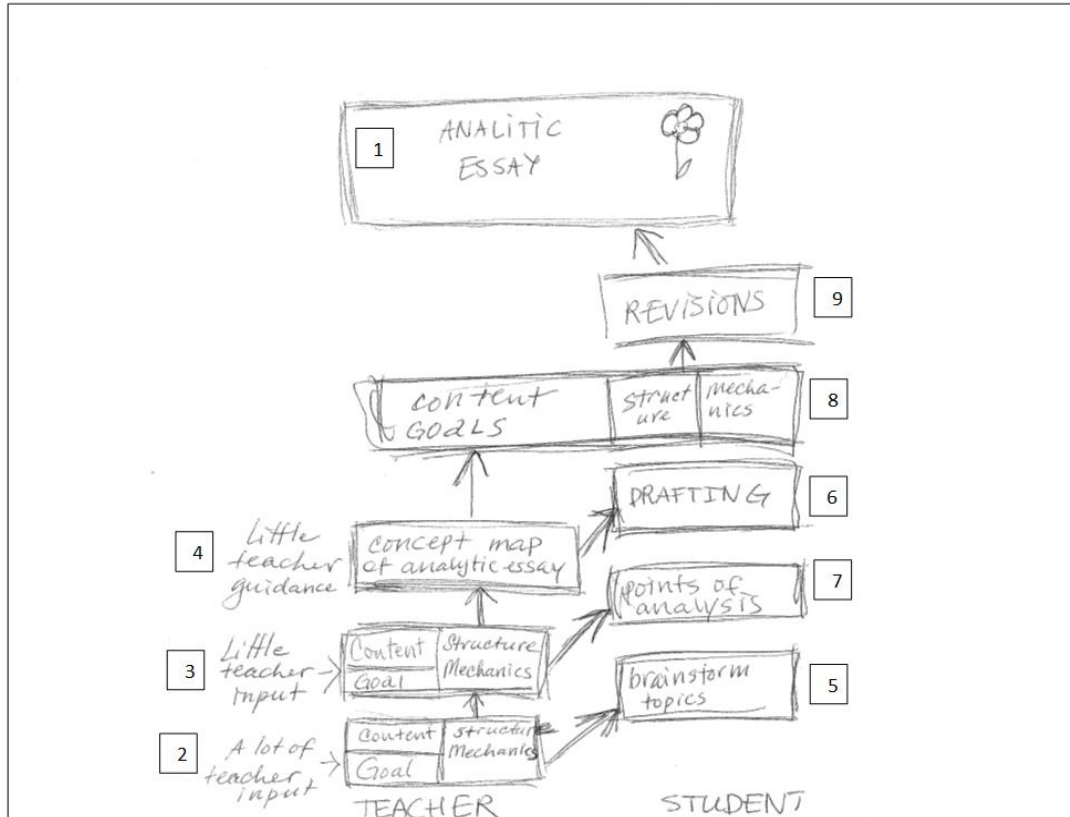 1
ANALITIC
ESSAY
REVISIONS
9
content
GOALS
Struct
ure
Mecha-
nics
8
DRAFTING
6
4
Little
teacher
guidance
concept map
of analytic essay
7
points of
analysis
3
Little
teacher
input
Content
Goal
Structure
Mechanics
brainstorm
topics
5
2
A lot of
teacher
input
Content
Goal
Structure
Mechanics
TEACHER
STUDENT